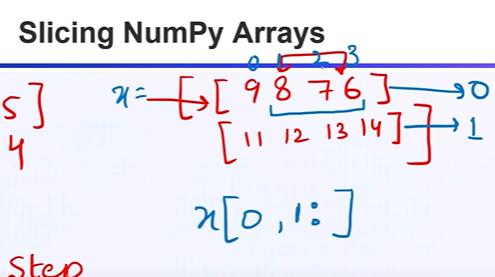 Slicing NumPy Arrays
0 1 2 3
5] x= → [[9 8 7 6] → 0
4 [11 12 13 14]] → 1
x[0, 1:]
Step